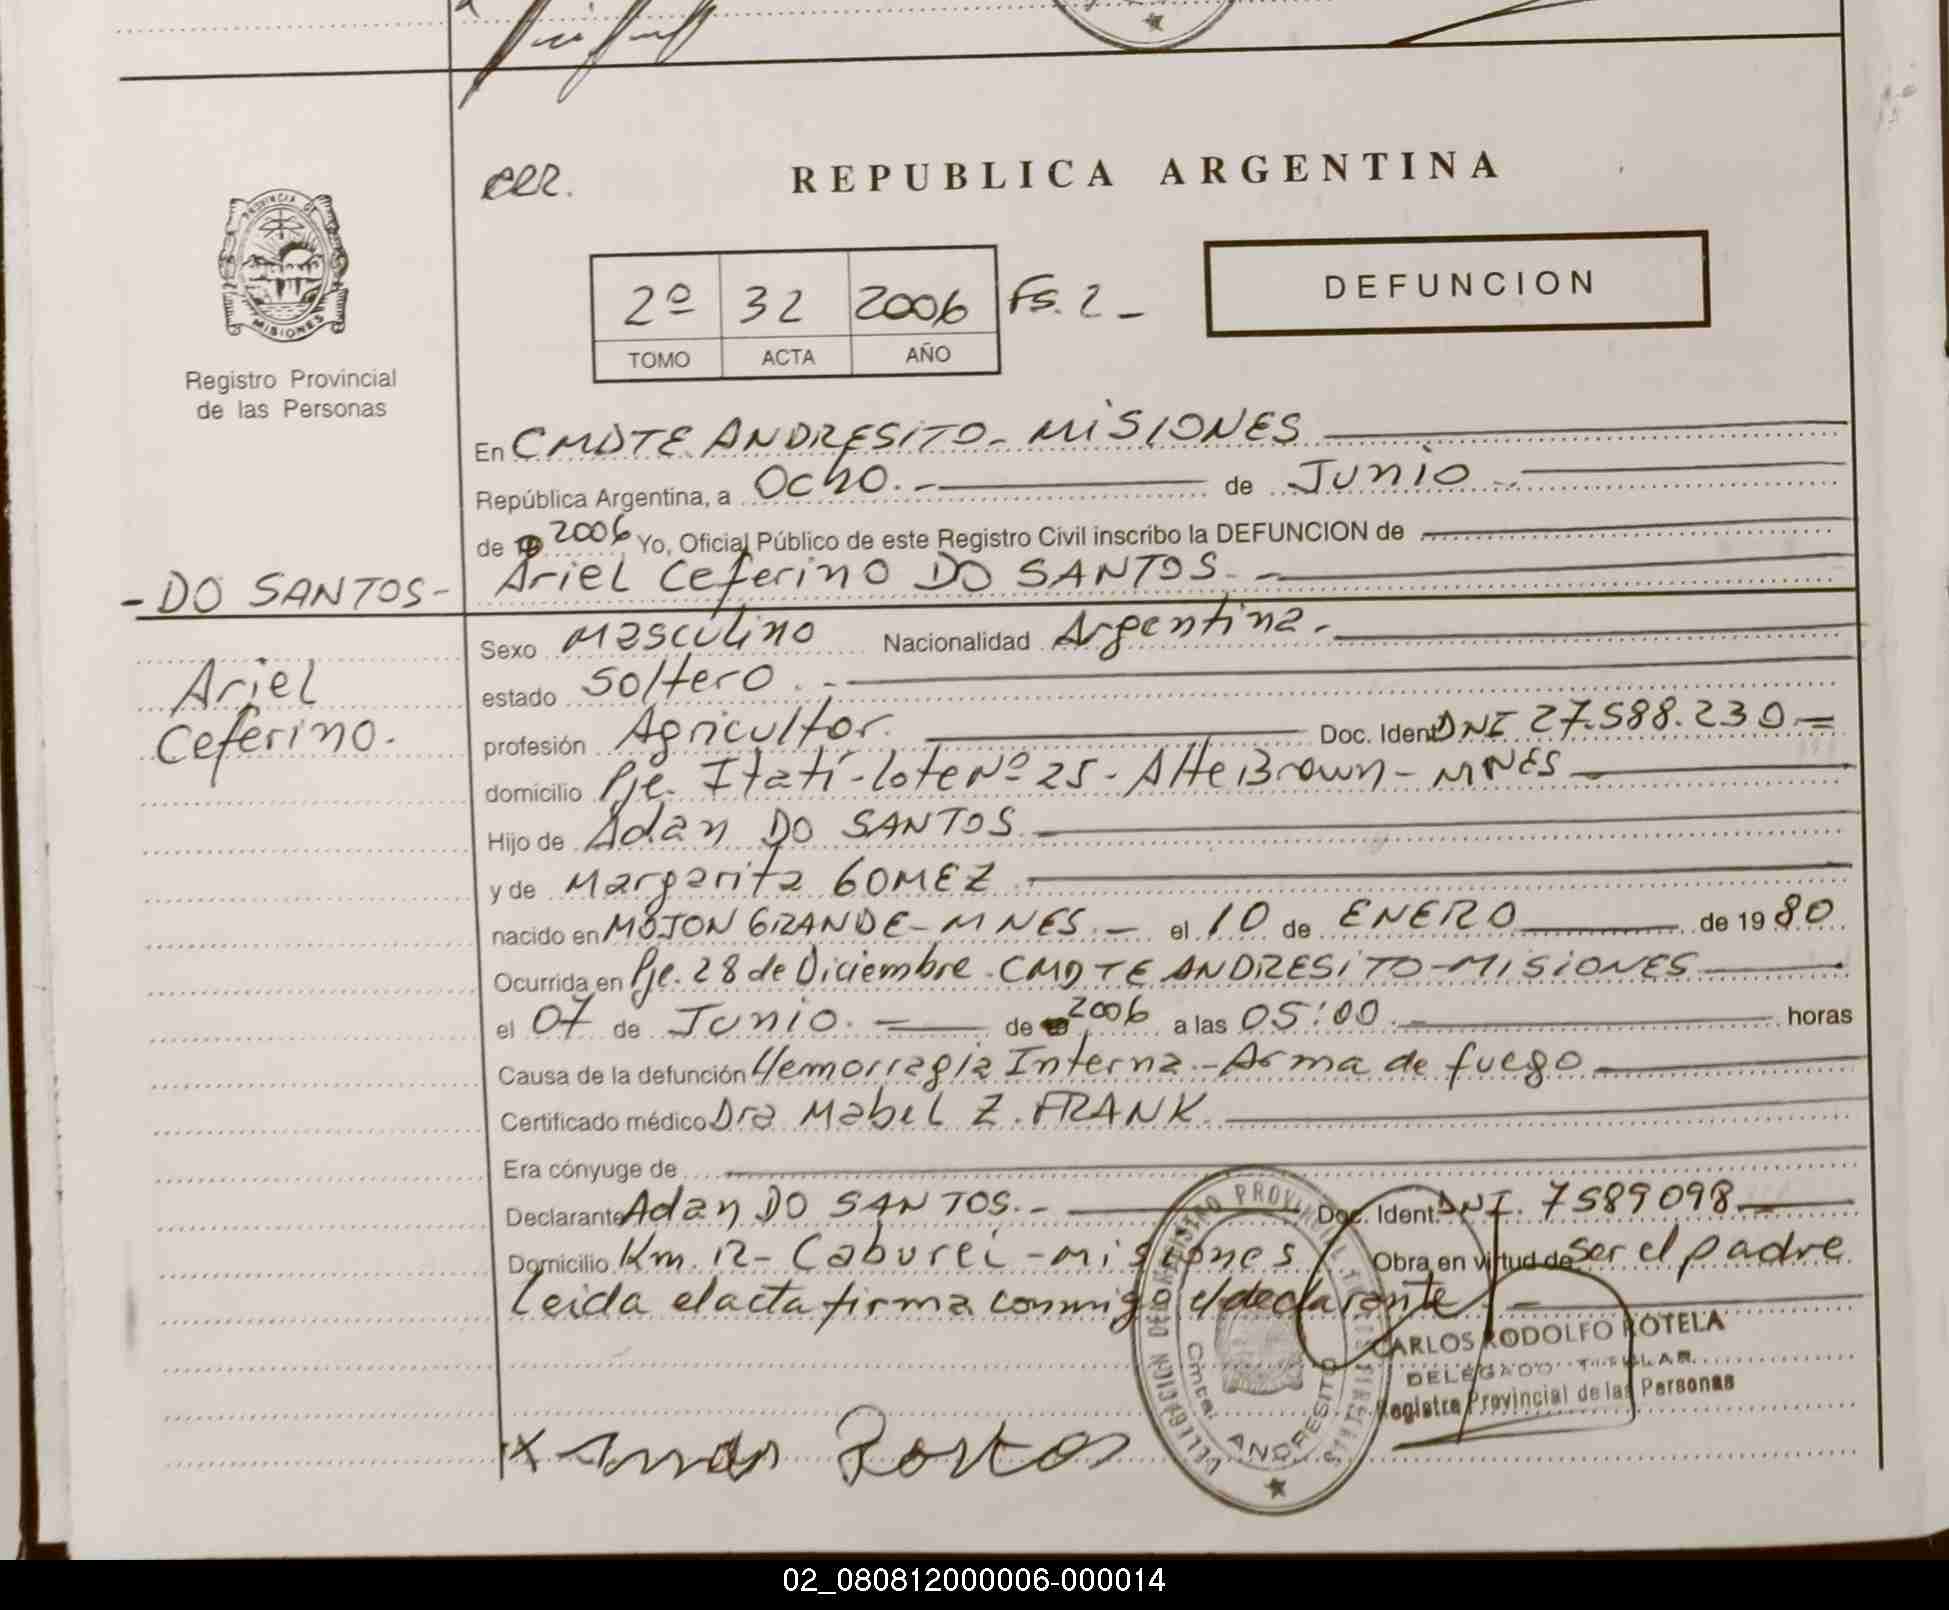 err.
REPUBLICA ARGENTINA
PROVINCIA DE MISIONES
2º 32 2006 Fs. 2 -
TOMO ACTA AÑO
DEFUNCION
Registro Provincial
de las Personas
En CMDTE ANDRESITO - MISIONES
República Argentina, a Ocho.- de Junio.-
de 2006 Yo, Oficial Público de este Registro Civil inscribo la DEFUNCION de
- DO SANTOS -
Ariel Ceferino DO SANTOS.-
Ariel
Ceferino.
Sexo Masculino Nacionalidad Argentina.-
estado Soltero.-
profesión Agricultor. Doc. Ident DNI 27.588.230.=
domicilio Pje. Itatí - lote Nº 25 - Alte Brown - MNES
Hijo de Adan DO SANTOS.
y de Margarita GOMEZ.
nacido en MOJON GRANDE - MNES.- el 10 de ENERO de 1980
Ocurrida en Pje. 28 de Diciembre. CMDTE ANDRESITO - MISIONES
el 07 de Junio.= de 2006 a las 05:00.- horas
Causa de la defunción Hemorragia Interna - Arma de fuego
Certificado médico Dra Mabel Z. FRANK.
Era cónyuge de
Declarante Adan DO SANTOS.- Doc. Ident. DNI. 7589098
Domicilio Km. 12 - Caburei - Misiones Obra en virtud de ser el padre
Leida el acta firma conmigo el declarante
CARLOS RODOLFO ROTELA
DELEGADO TITULAR
Registro Provincial de las Personas
DELEGACION DEL REGISTRO PROVINCIAL DE LAS PERSONAS
Cmte. ANDRESITO
02_080812000006-000014